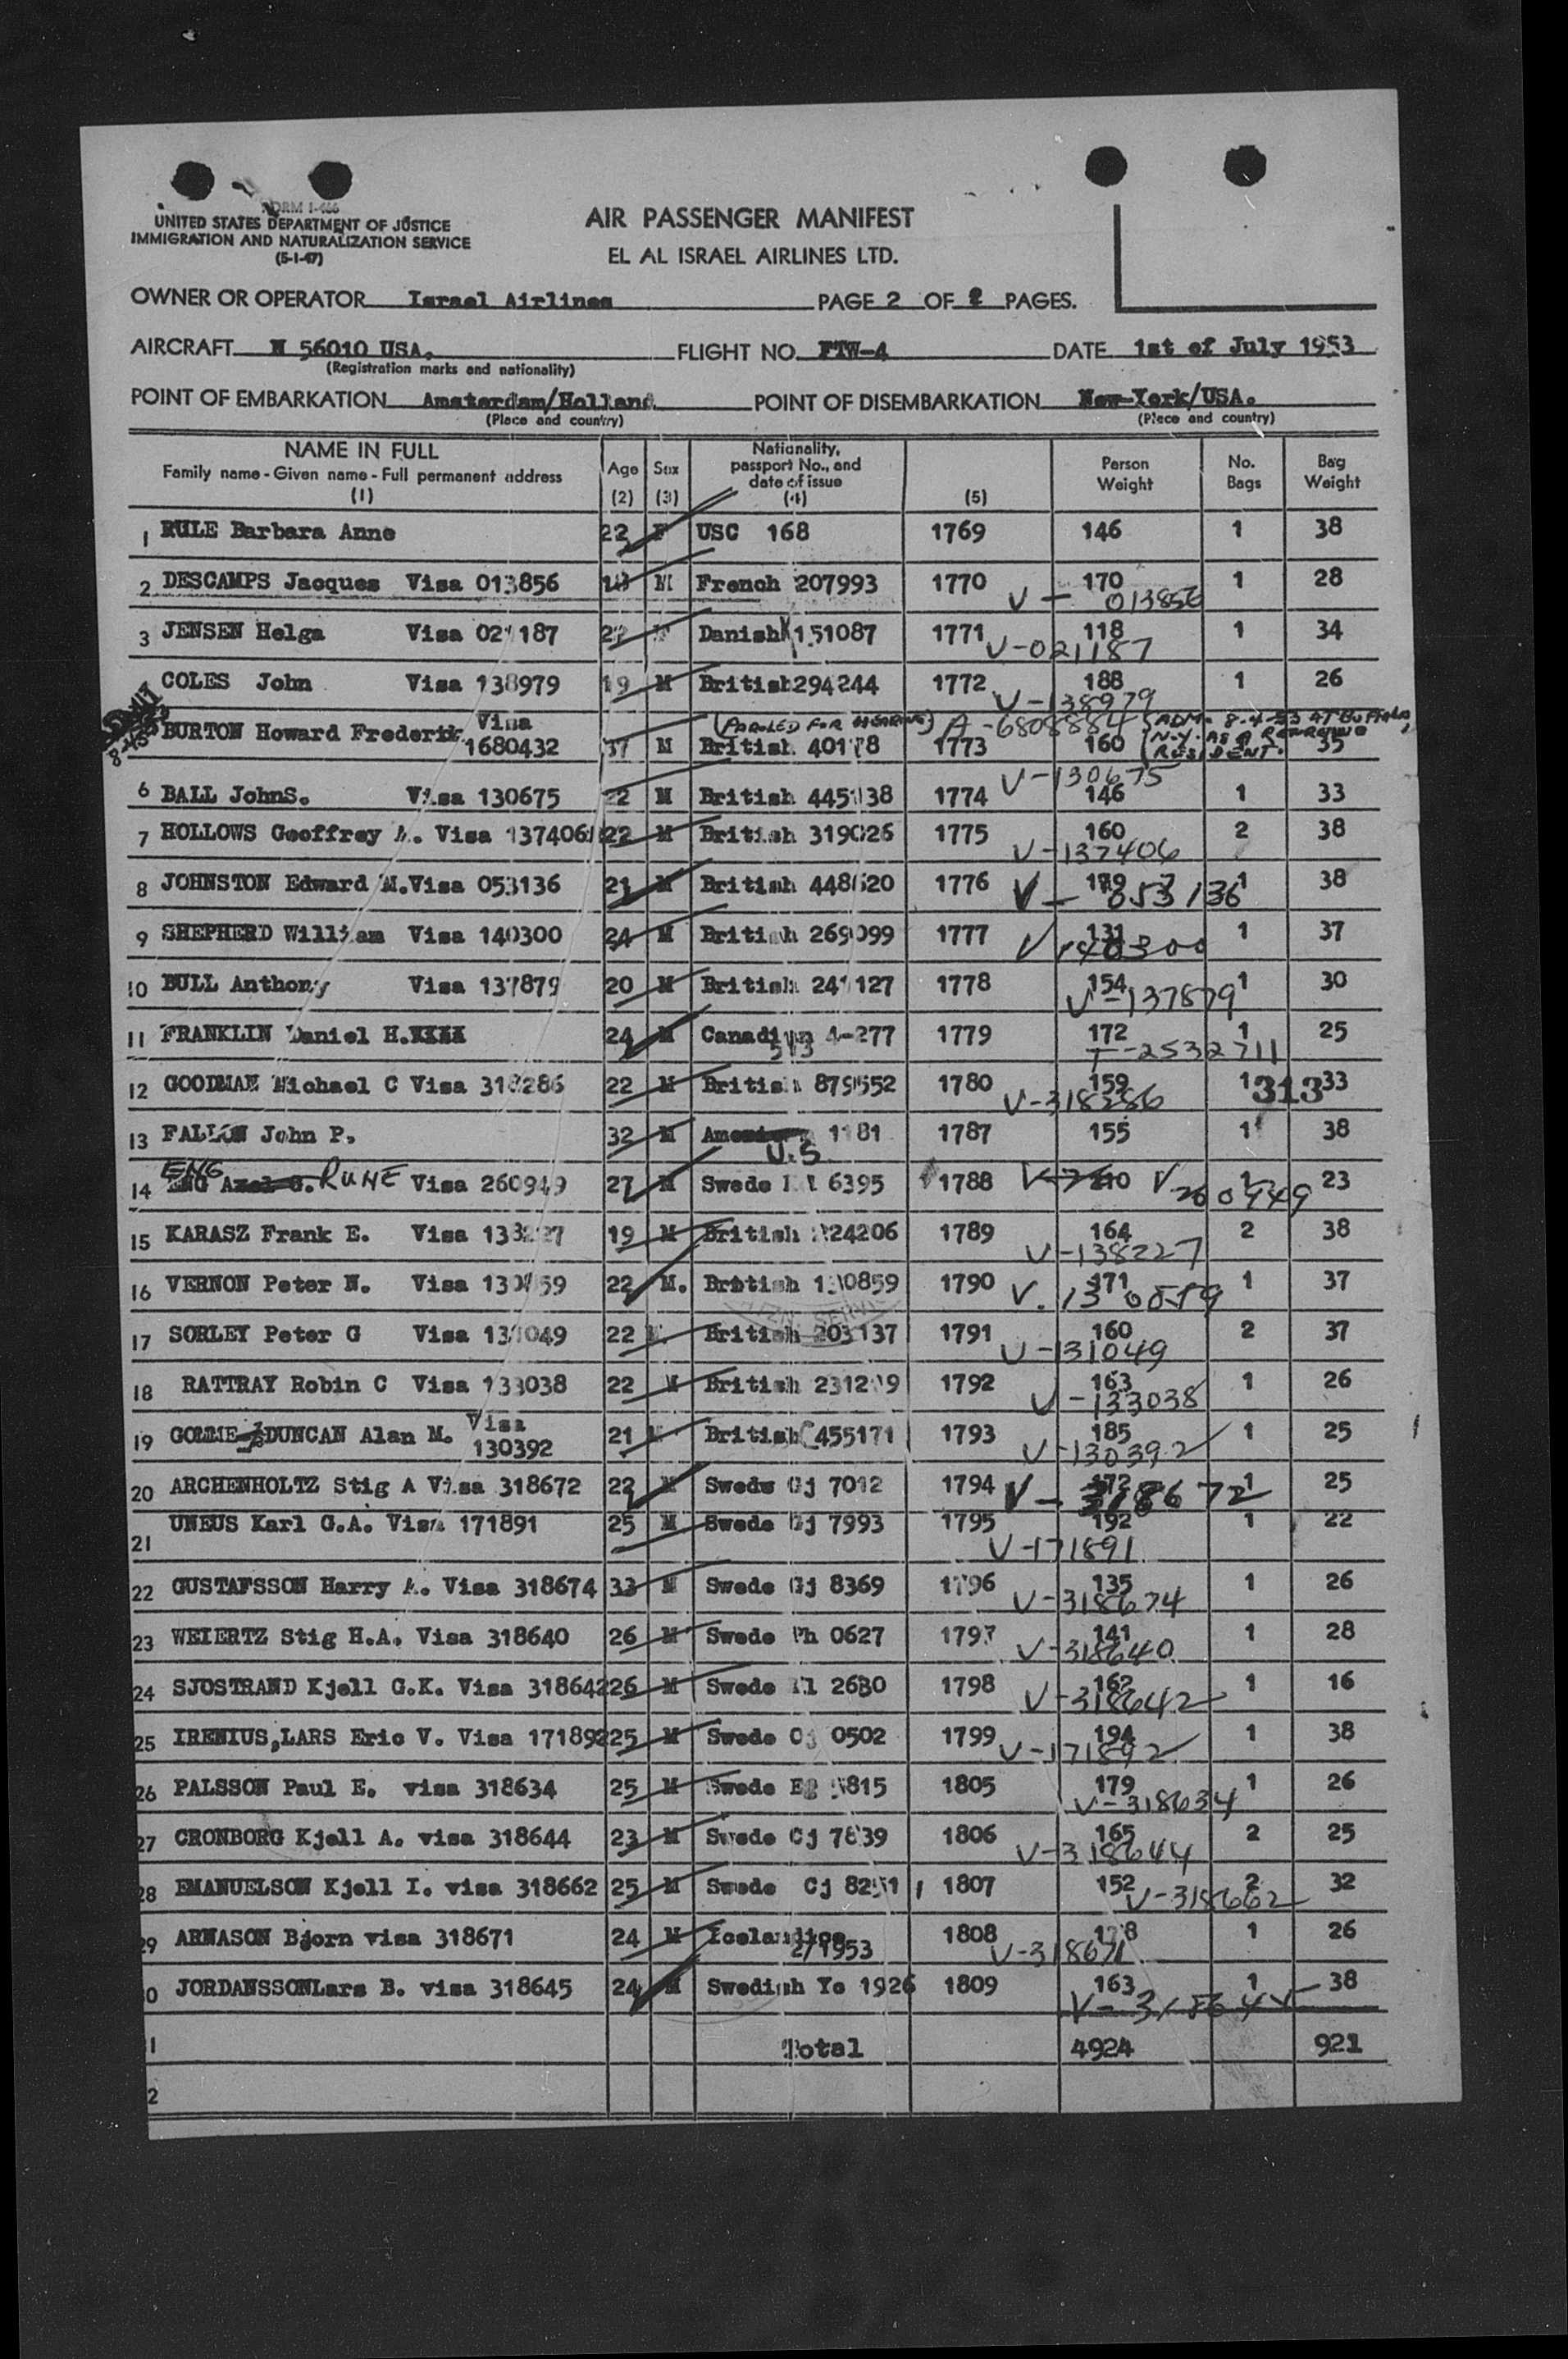 FORM I-466
UNITED STATES DEPARTMENT OF JUSTICE
IMMIGRATION AND NATURALIZATION SERVICE
(5-1-47)
AIR PASSENGER MANIFEST
EL AL ISRAEL AIRLINES LTD.
OWNER OR OPERATOR Israel Airlines PAGE 2 OF 2 PAGES.
AIRCRAFT N 56010 USA. FLIGHT NO. FTW-4 DATE 1st of July 1953
(Registration marks and nationality)
POINT OF EMBARKATION Amsterdam/Holland POINT OF DISEMBARKATION New-York/USA.
(Place and country) (Place and country)
NAME IN FULL
Family name - Given name - Full permanent address
(1)
Age
(2)
Sex
(3)
Nationality,
passport No., and
date of issue
(4)
(5)
Person
Weight
No.
Bags
Bag
Weight
1 RULE Barbara Anne 22 F USC 168 1769 146 1 38
2 DESCAMPS Jacques Visa 013856 M French 207993 1770 170 1 28
V - 013856
3 JENSEN Helga Visa 021187 Danish 151087 1771 118 1 34
V-021187
COLES John Visa 138979 19 M British 294244 1772 188 1 26
V-138979
(PAROLED FOR HEARING) A-6808884 (ADM. 8-4-53 AT Buffalo,
N.Y. AS A RETURNING
RESIDENT.
BURTON Howard Frederik Visa
1680432 37 M British 40178 1773 160 35
V-130675
6 BALL JohnS. Visa 130675 22 M British 445138 1774 146 1 33
7 HOLLOWS Geoffrey A. Visa 137406 22 M British 319026 1775 160 2 38
V-137406
8 JOHNSTON Edward M.Visa 053136 21 M British 448620 1776 1 38
V- 053136
9 SHEPHERD William Visa 140300 24 M British 269099 1777 131 1 37
V 140300
10 BULL Anthony Visa 137879 20 M British 241127 1778 154 1 30
V-137879
11 FRANKLIN Daniel H. 24 M Canadian 4-277 1779 172 1 25
513 T-2532711
12 GOODMAN Michael C Visa 318286 22 M British 879552 1780 159 1 33
V-318286 313
13 FALLON John P. 32 M American 1181 1787 155 1 38
U.S
14 ENG Axel G. RUNE Visa 260949 27 M Swede 6395 1788 210 1 23
ENG V 260949
15 KARASZ Frank E. Visa 138227 19 M British 224206 1789 164 2 38
V-138227
16 VERNON Peter N. Visa 130859 22 M. British 130859 1790 171 1 37
V. 130859
17 SORLEY Peter G Visa 131049 22 British 203137 1791 160 2 37
V-131049
18 RATTRAY Robin C Visa 133038 22 M British 1792 163 1 26
V-133038
19 GOLLIE DUNCAN Alan M. Visa
130392 21 British C 455171 1793 185 1 25
V-130392
20 ARCHENHOLTZ Stig A Visa 318672 22 M Swede Gj 7012 1794 172 1 25
V-318672
21 UNEUS Karl G.A. Visa 171891 25 M Swede Gj 7993 1795 192 1 22
V-171891
22 GUSTAFSSON Harry A. Visa 318674 33 M Swede Gj 8369 1796 135 1 26
V-318674
23 WEIERTZ Stig H.A. Visa 318640 26 M Swede Ph 0627 1797 141 1 28
V-318640
24 SJOSTRAND Kjell G.K. Visa 318642 26 M Swede 2680 1798 162 1 16
V-318642
25 IRENIUS,LARS Eric V. Visa 171892 25 M Swede Cj 0502 1799 194 1 38
V-171892
26 PALSSON Paul E. visa 318634 25 M Swede 5815 1805 179 1 26
V-318634
27 CRONBORG Kjell A. visa 318644 23 M Swede Cj 7839 1806 165 2 25
V-318644
28 EMANUELSON Kjell I. visa 318662 25 M Swede Cj 8251 1807 152 2 32
V-318662
29 ARNASON Bjorn visa 318671 24 M Icelandic 1808 1 26
2/1953 V-318671
0 JORDANSSONLars B. visa 318645 24 M Swedish Ye 1926 1809 163 1 38
V-318645
1 Total 4924 921
2